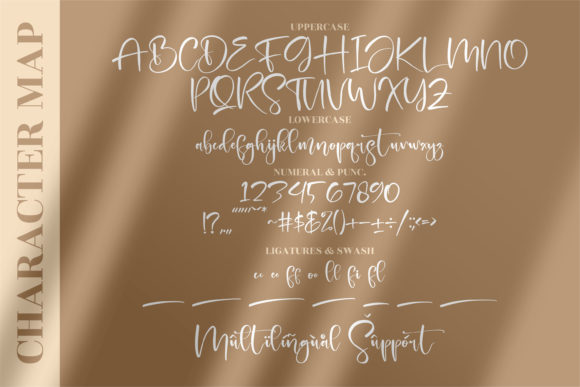 CHARACTER MAP
UPPERCASE
ABCDEFGHIJKLMNO
PQRSTUVWXYZ
LOWERCASE
abcdefghijklmnopqrstuvwxyz
NUMERAL & PUNC.
1234567890
~#$&%()+-±÷/:;<=>
LIGATURES & SWASH
ff oo ll fi fl
Mùltïlíñgùål Šûppórt